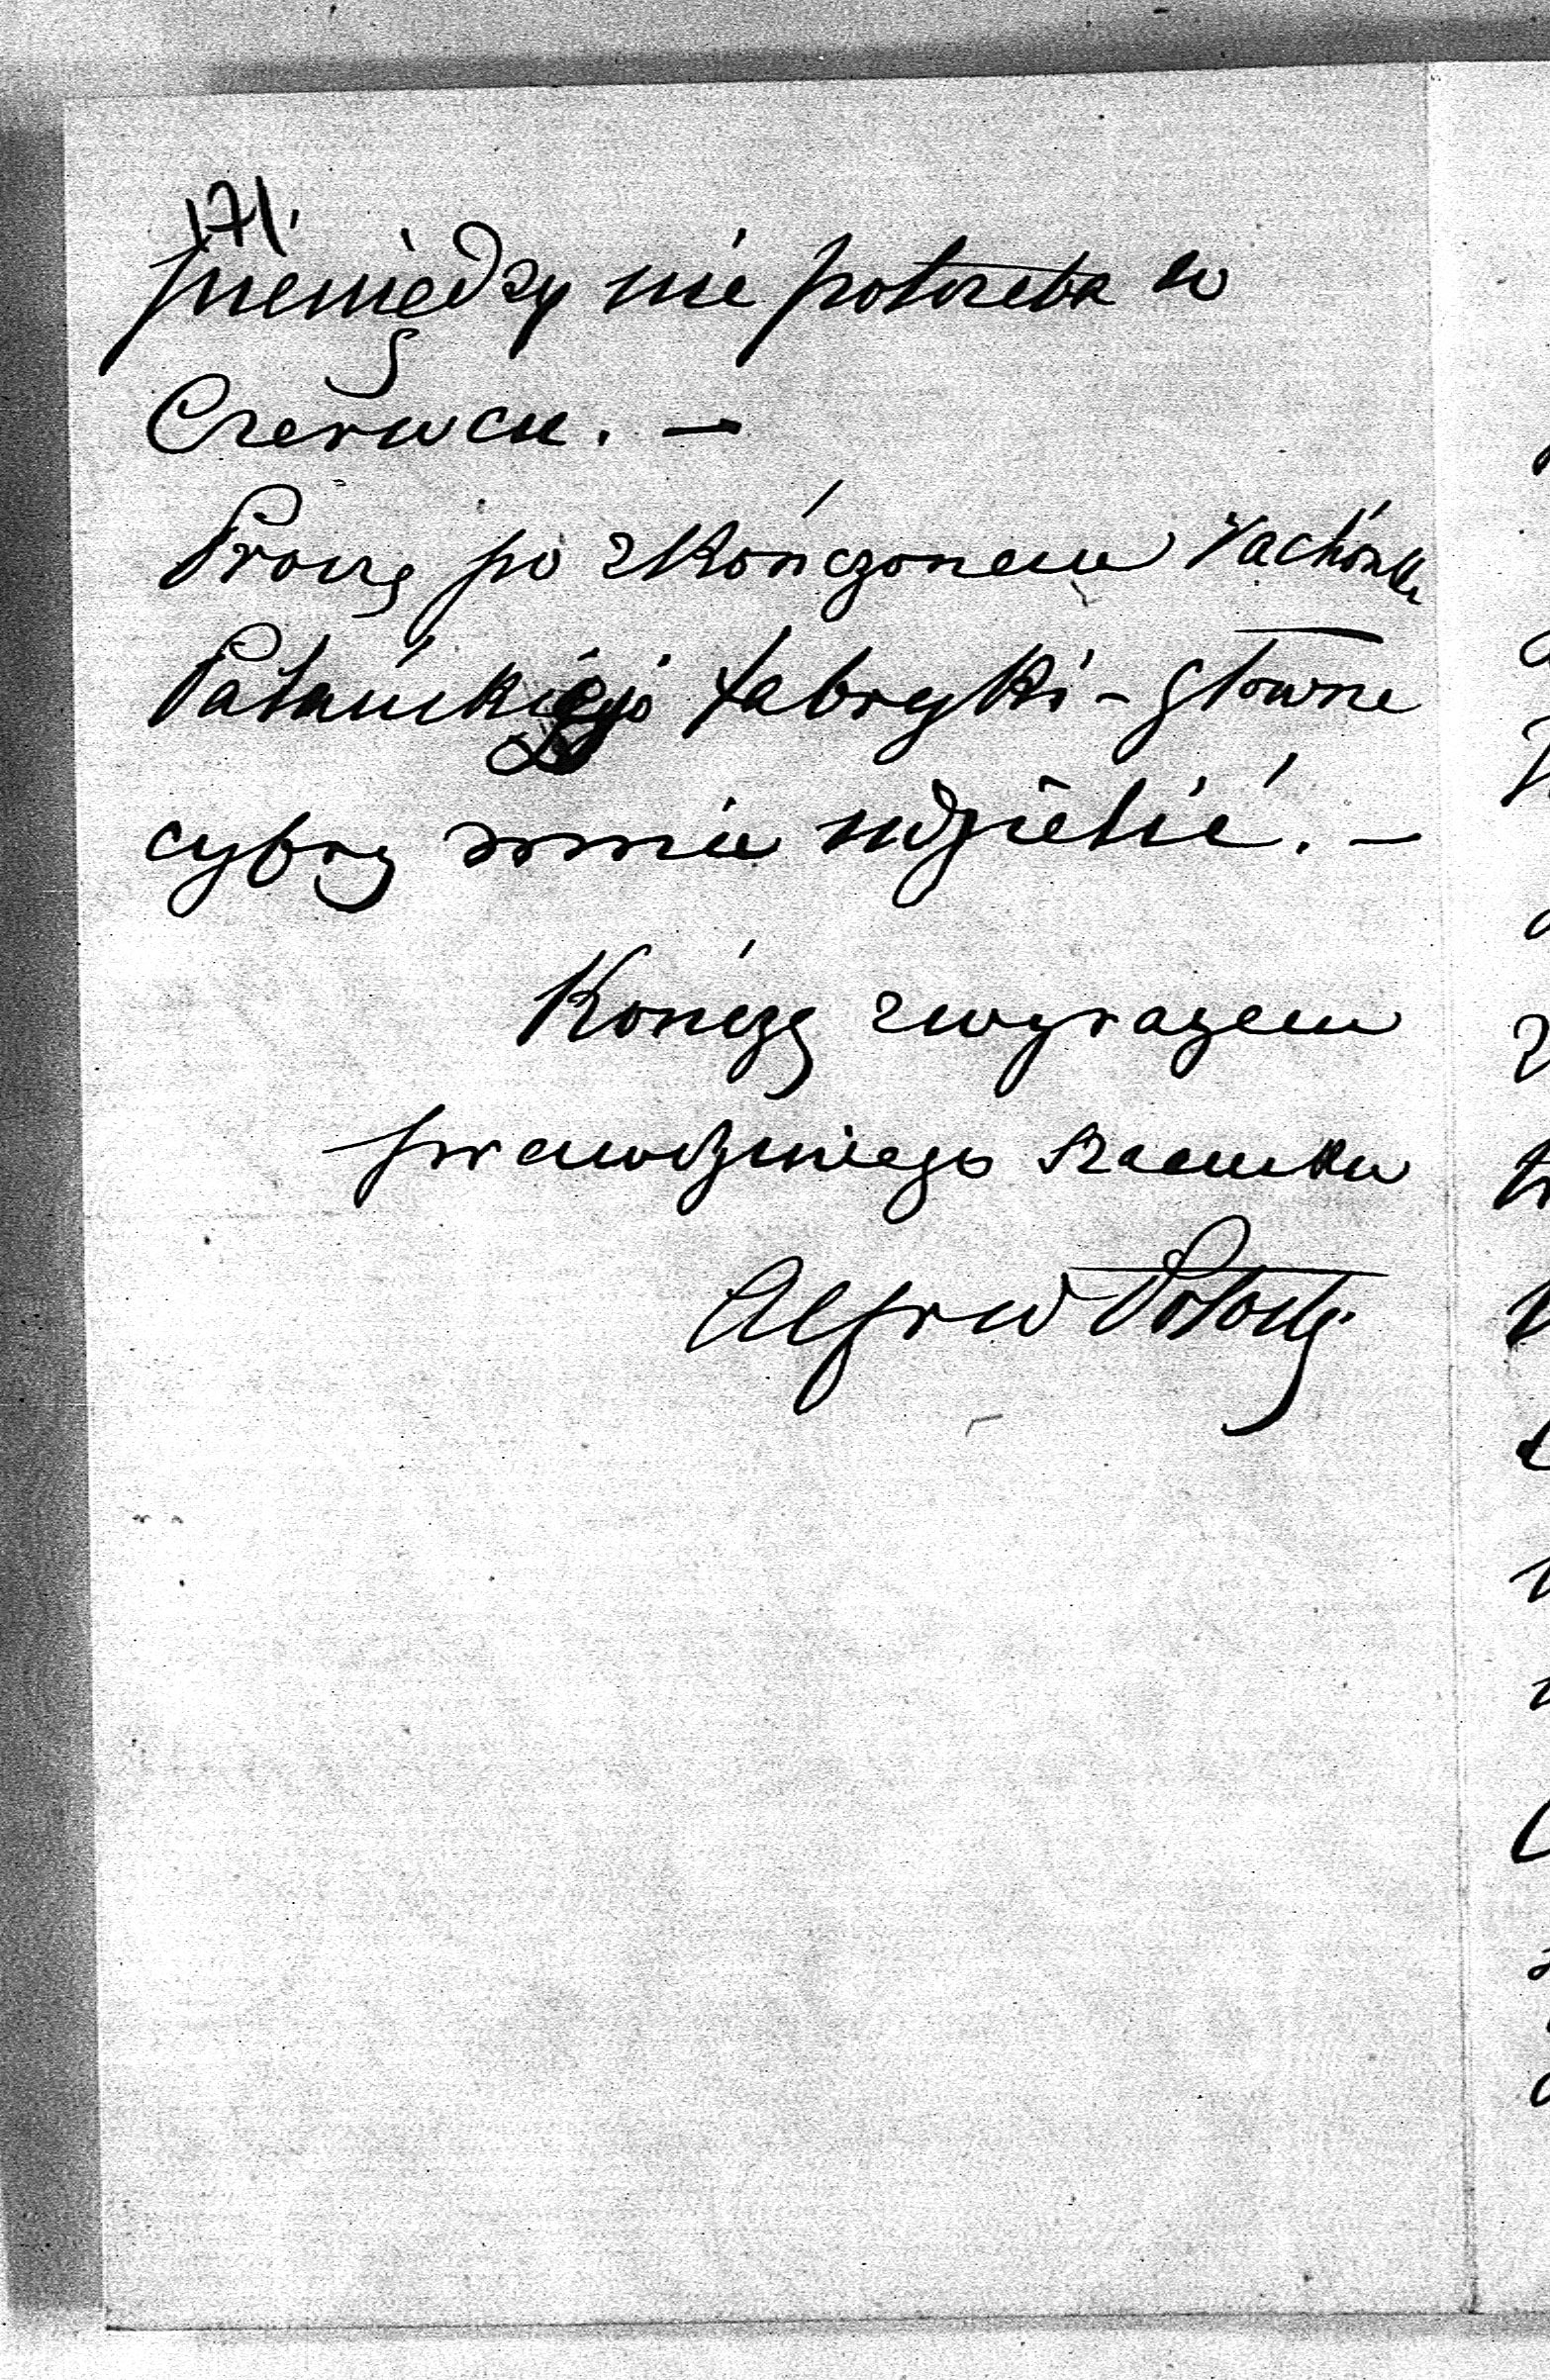 171.
pieniędzy nie potrzeba w
Czerwcu. —
Proszę po zkończonem rachunku
fabryki - główne
cyfry mnie udzielić. —
Kończę z wyrazem
prawdziwego szacunku
Alfred Potocki